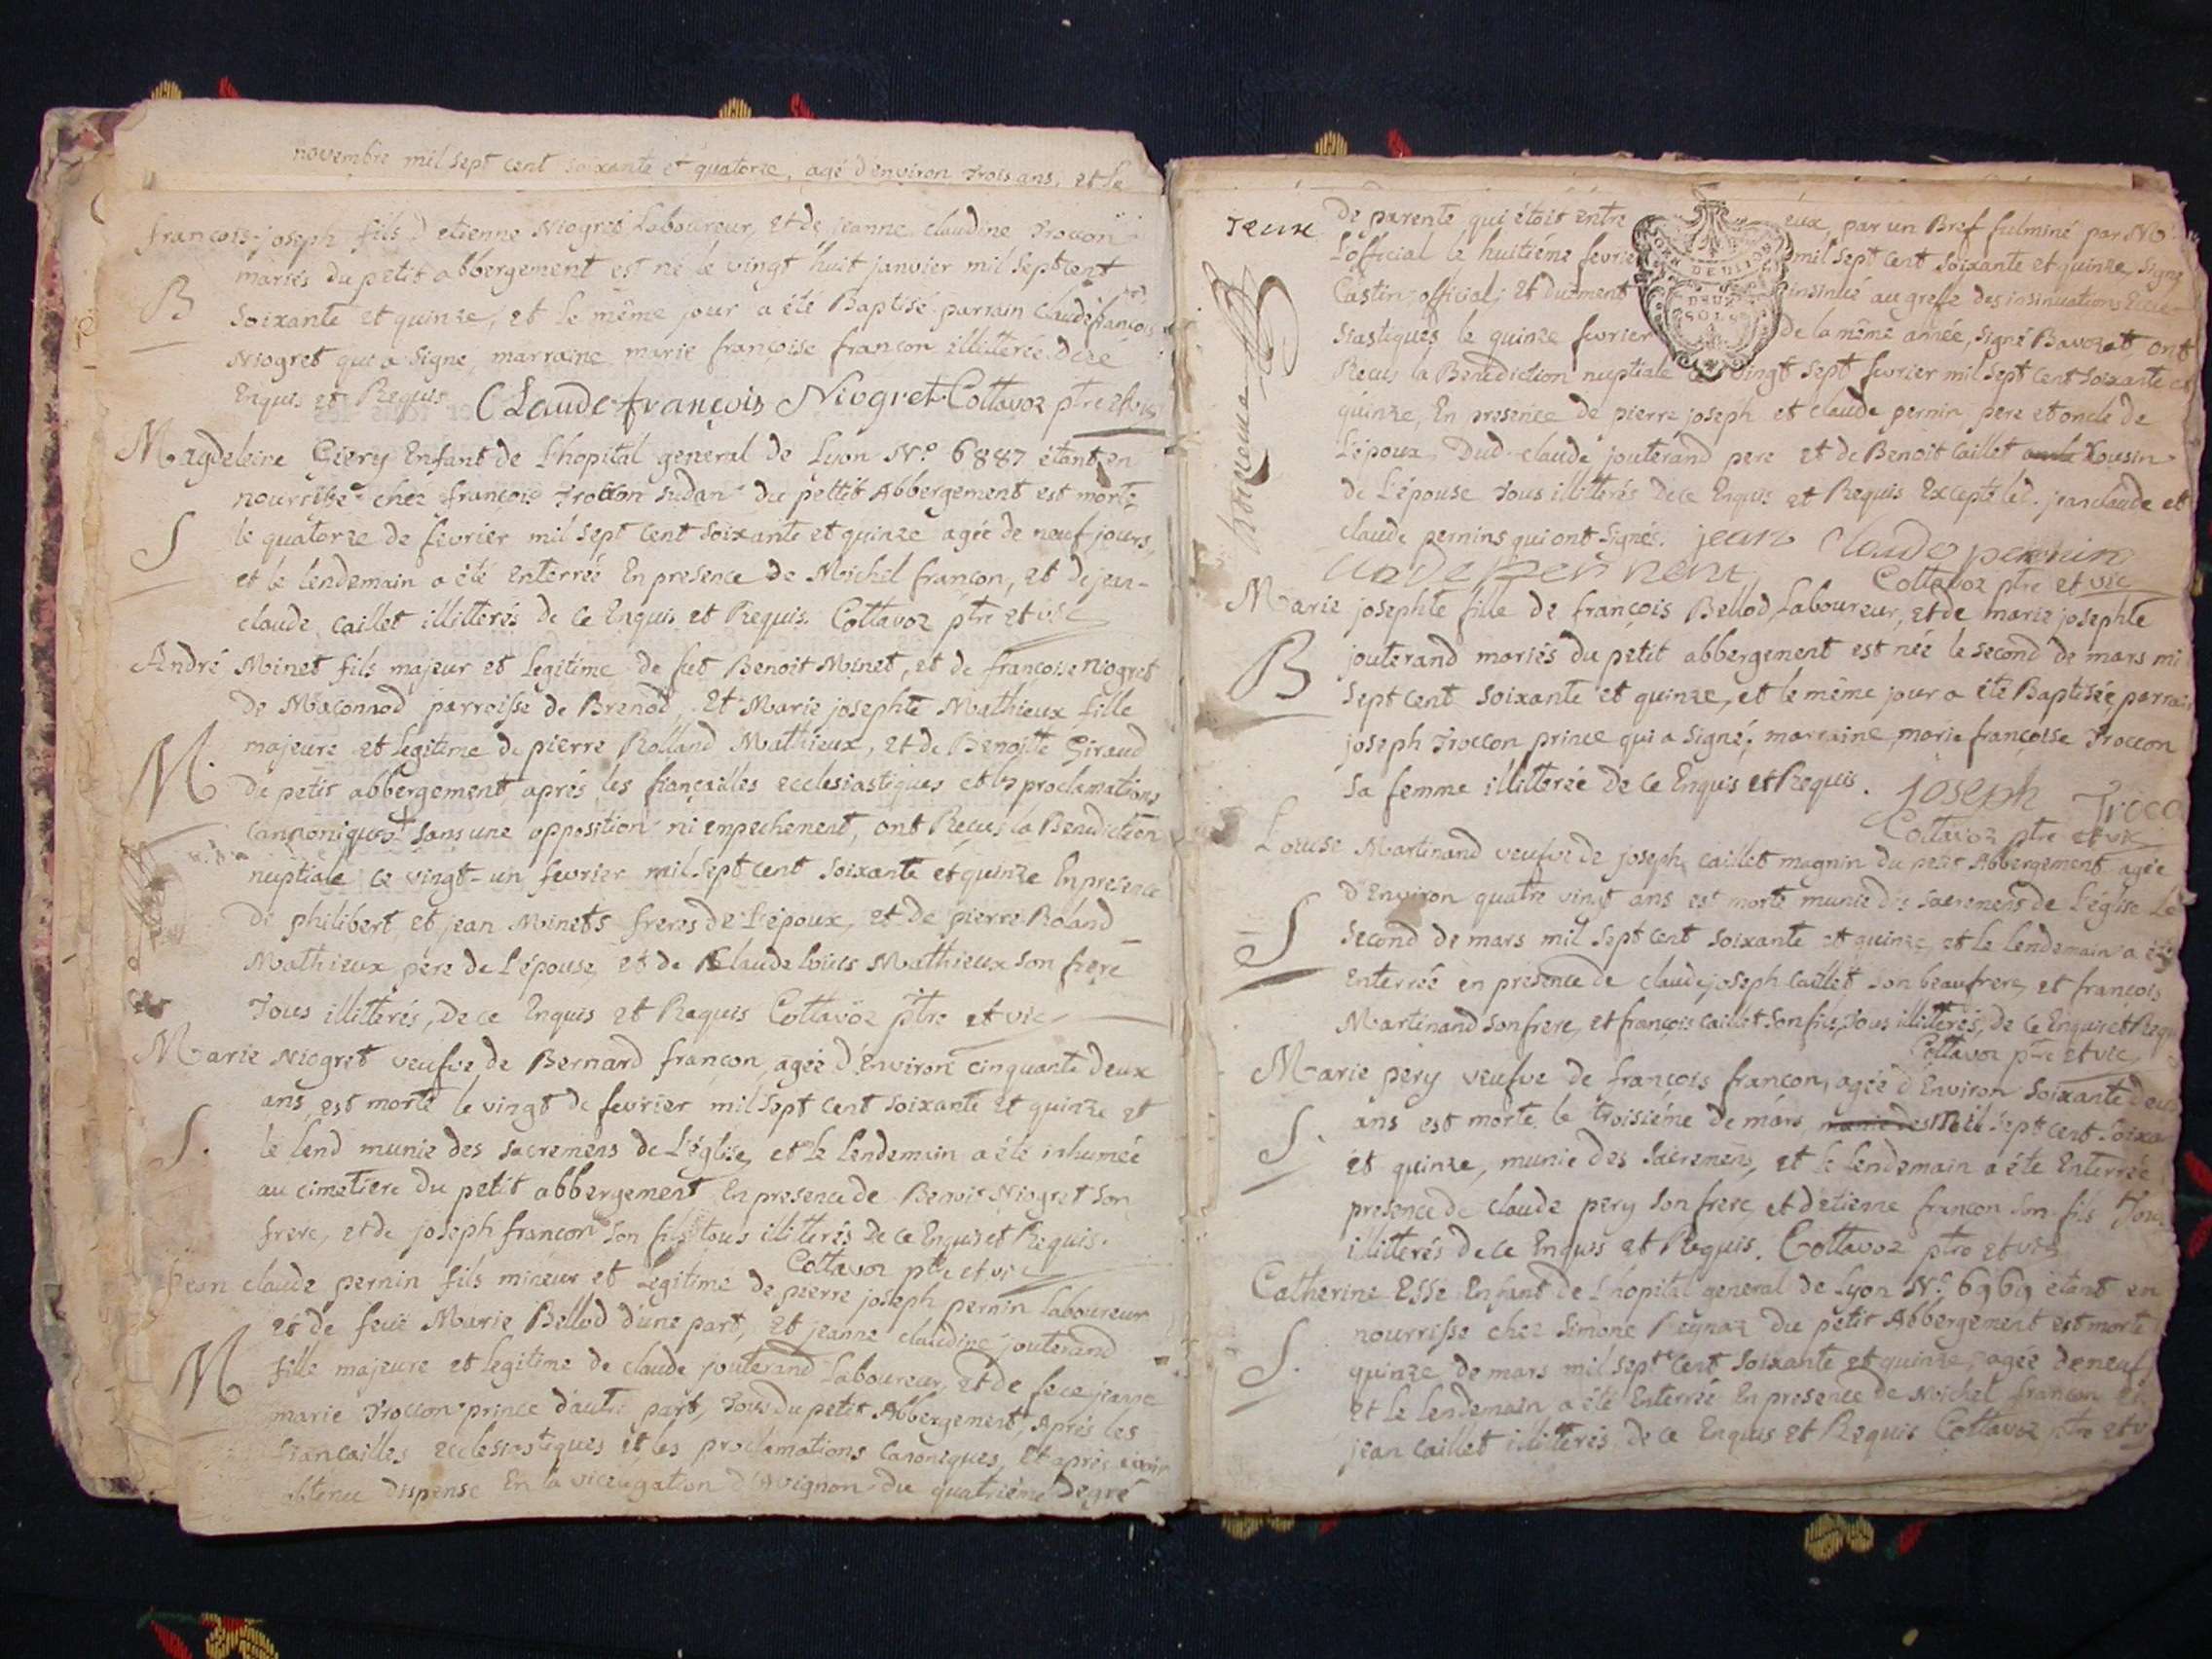 novembre mil sept cent soixante et quatorze, agé d'environ trois ans, et le
françois-joseph fils d'etienne Niogret Laboureur, et de jeanne claudine Troccon
mariés du petit abbergement est né le vingt huit janvier mil sept cent
B soixante et quinze, et le même jour a été Baptisé parrain claude françois
Niogret qui a signé, marraine marie françoise françon illitterée de ce
Enquis et Requis Claude françois Niogret Cottavoz ptre et vic
Magdeleine Giery Enfant de l'hopital general de Lyon N.° 6887 étant en
nourrisse chez françois Troccon sudan du pettit Abbergement est morte
S le quatorze de fevrier mil sept cent soixante et quinze agée de neuf jours,
et le lendemain a été Enterrée En presence de Michel françon, et de jean-
claude caillet illitterés de ce Enquis et Requis. Cottavoz ptre et vic
André Minet fils majeur et legitime de fut Benoit Minet, et de françoise niogret
de Maconnod parroisse de Brenod, Et Marie josephte Mathieux fille
majeure et legitime de pierre Rolland Mathieux, et de Benoitte Giraud
M. du petit abbergement aprés les fiançailles ecclesiastiques et les proclamations
cannoniques sans une opposition ni empechement, ont Reçus la Benediction
nuptiale ce vingt-un fevrier mil sept cent soixante et quinze En presence
de philibert et jean Minets freres de l'époux, et de pierre Roland
Mathieux pere de l'épouse, et de Claude louis Mathieux son frere
Tous illitterés, de ce Enquis et Requis Cottavoz ptre et vic
Marie Niogret veufve de Bernard françon agée d'Environ cinquante deux
ans est morte le vingt de fevrier mil sept cent soixante et quinze et
S. le lend munie des sacremens de l'église, et le lendemain a été inhumée
au cimetiere du petit abbergement En presence de Benoit Niogret son
frere, et de joseph françon son fils tous illitterés de ce Enquis et Requis.
Cottavoz ptre et vic
jean claude pernin fils mineur et Legitime de pierre joseph pernin laboureur
et de feüe Marie Bellod d'une part, et jeanne claudine jouterand
M fille majeure et legitime de claude jouterand Laboureur, et de feue jeanne
marie Troccon prince d'autre part, Tous du petit Abbergement, Aprés les
fiançailles ecclesiastiques et les proclamations canoniques, Et aprés avoir
obtenu dispense En la vicelegation d'Avignon du quatriéme Degré
Teure De parenté qui étoit entre eux, par un Bref fulminé par Mr
L'official le huitiéme fevrier mil sept cent soixante et quinze, signé
Castin official; et duement insinué au grefe des insinuations Eccle-
siastiques le quinze fevrier de la même année, signé Bavozat, ont
DEUX
SOLS
Reçus la Benediction nuptiale ce vingt sept fevrier mil sept cent soixante et
quinze, En presence de pierre joseph et claude pernin pere et oncle de
L'époux, Dud. claude jouterand pere et de Benoit Caillet cousin
de L'épouse Tous illitterés de ce Enquis et Requis Excepté led. jean claude et
claude pernins qui ont signés. jean claude pernin
Cottavoz ptre et vic
Marie josephte fille de françois Bellod Laboureur, et de marie josephte
B jouterand mariés du petit abbergement est née le second de mars mil
sept cent soixante et quinze, et le même jour a été Baptisée parrain
joseph Troccon prince qui a signé, marraine marie françoise Troccon
sa femme illitterée de ce Enquis et Requis. joseph Troco
Cottavoz ptre et vic
Louise Martinand veufve de joseph caillet magnin du petit Abbergement agée
d'Environ quatre vingt ans est morte munie des sacremens de L'église Le
S second de mars mil sept cent soixante et quinze, et le lendemain a été
Enterrée en presence de claude joseph Caillet son beaufrere, et françois
Martinand son frere, et françois caillet son fils, Tous illitterés, de ce Enquis et Requ
Cottavoz ptre et vic
Marie pery veufve de françois françon, agée d'Environ soixante deux
S. ans est morte le troisiéme de mars mil sept cent soixan
et quinze, munie des sacremens, et le lendemain a été Enterrée
presence de claude pery son frere, et d'etienne françon son fils Tous
illitterés de ce Enquis et Requis. Cottavoz ptre et vic
Catherine Essé Enfant de L'hopital general de Lyon N.° 6969 étant en
nourrisse chez Simone Reynaz du petit Abbergement est morte
S. quinze de mars mil sept cent soixante et quinze, agée de neuf
et le lendemain a été Enterrée En presence de Michel françon et
jean caillet illitterés, de ce Enquis et Requis Cottavoz ptre et v